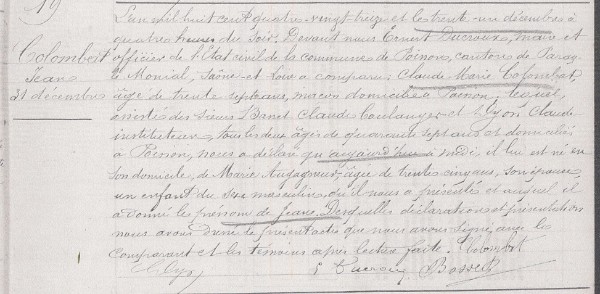 19
Colombat
Jean
31 décembre
L'an mil huit cent quatre vingt treize et le trente un décembre à
quatre heures du soir. Devant nous Ernest Ducroux, maire et
officier de l'Etat civil de la commune de Poisson, canton de Paray
le Monial, Saône et Loire a comparu: Claude Marie Colombat,
âgé de trente sept ans, maçon domicilié à Poisson; lequel,
assisté des sieurs Claude boulanger et Claude
instituteur, tous les deux âgés de quarante sept ans et domiciliés
à Poisson, nous a déclaré qu'aujourd'hui à midi, il lui est né en
son domicile, de Marie Augagneur, âgée de trente cinq ans, son épouse
un enfant du sexe masculin, qu'il nous a présenté et auquel il
a donné le prénom de Jean. Desquelles déclaration et présentation
nous avons dressé le présent acte que nous avons signé, avec les
comparant et les témoins après lecture faite. Colombat
E Ducroux